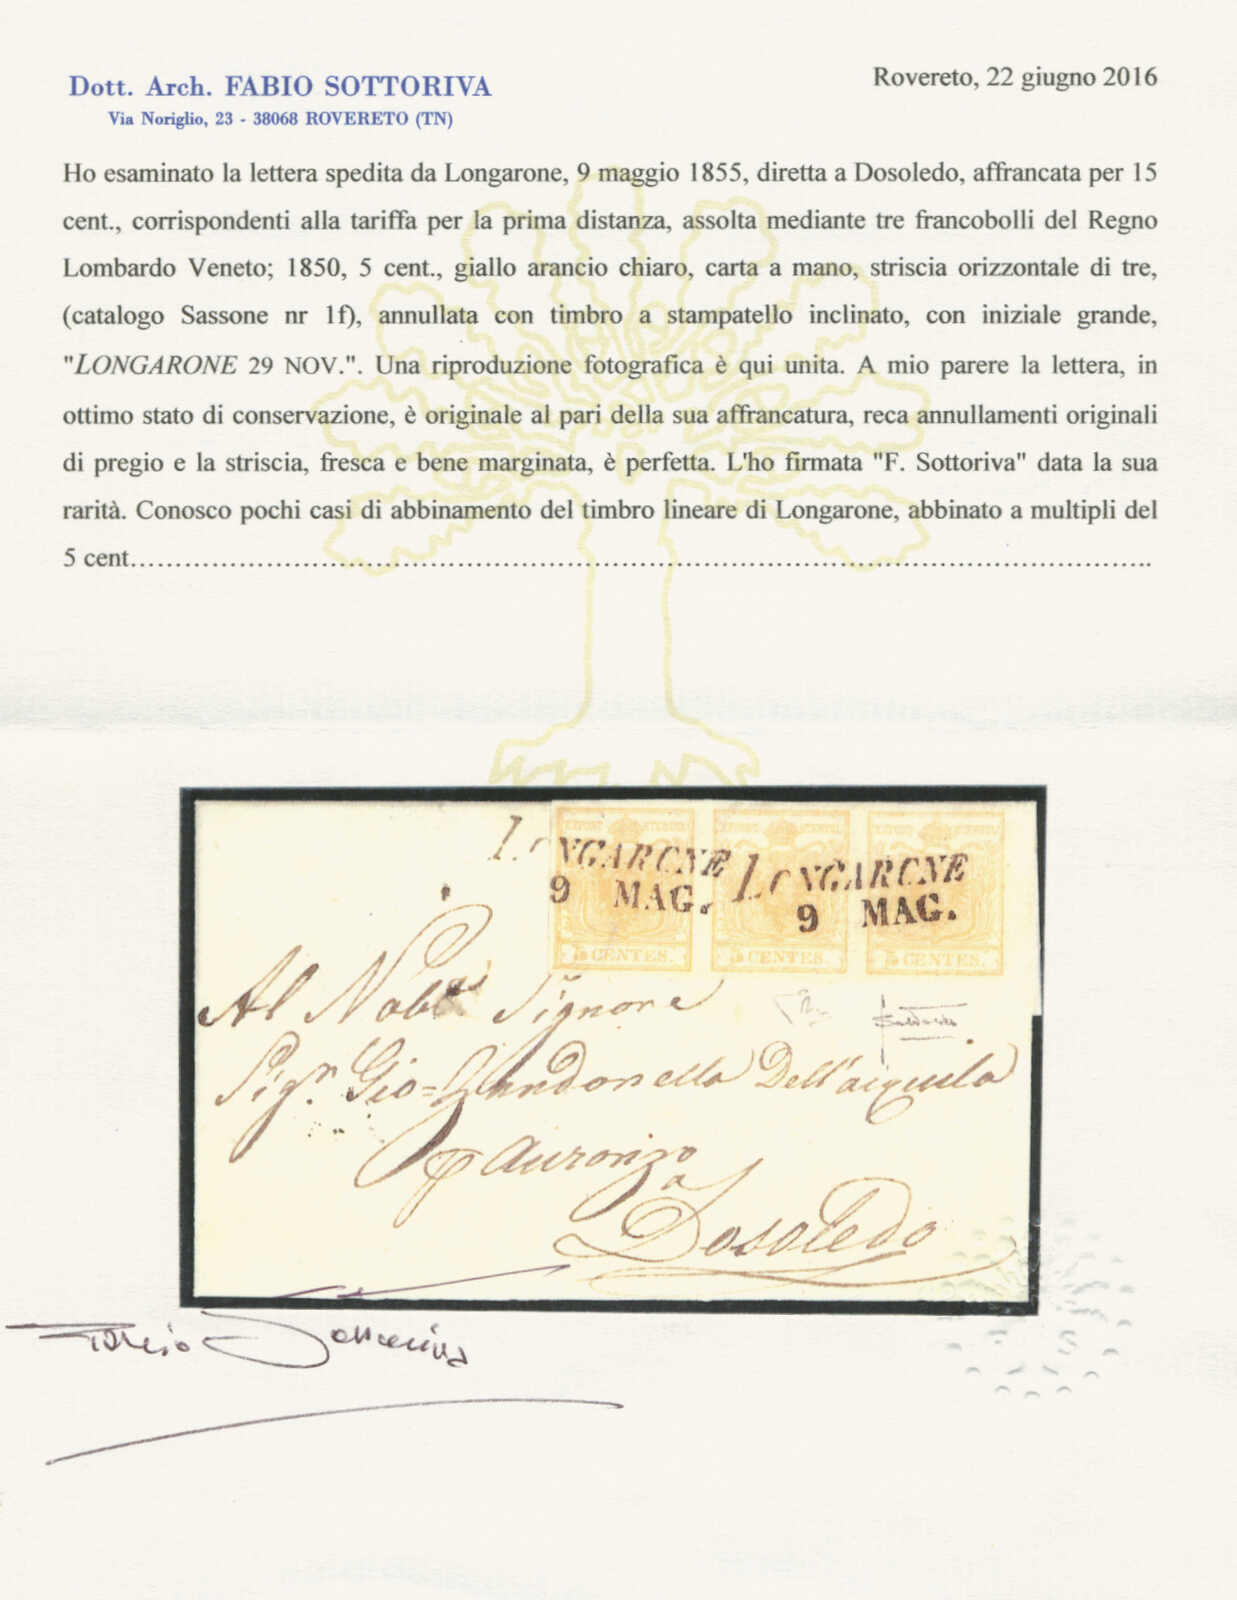 Dott. Arch. FABIO SOTTORIVA
Via Noriglio, 23 - 38068 ROVERETO (TN)
Rovereto, 22 giugno 2016
Ho esaminato la lettera spedita da Longarone, 9 maggio 1855, diretta a Dosoledo, affrancata per 15
cent., corrispondenti alla tariffa per la prima distanza, assolta mediante tre francobolli del Regno
Lombardo Veneto; 1850, 5 cent., giallo arancio chiaro, carta a mano, striscia orizzontale di tre,
(catalogo Sassone nr 1f), annullata con timbro a stampatello inclinato, con iniziale grande,
"LONGARONE 29 NOV.". Una riproduzione fotografica è qui unita. A mio parere la lettera, in
ottimo stato di conservazione, è originale al pari della sua affrancatura, reca annullamenti originali
di pregio e la striscia, fresca e bene marginata, è perfetta. L'ho firmata "F. Sottoriva" data la sua
rarità. Conosco pochi casi di abbinamento del timbro lineare di Longarone, abbinato a multipli del
5 cent……………………………………………………………………………………………..
LONGARONE LONGARONE
9 MAG. 9 MAG.
5 CENTES. 5 CENTES. 5 CENTES.
Al Signore
Sigr. Gio= Dell'acquila
Auronzo
a
Dosoledo
Fabio Sottoriva